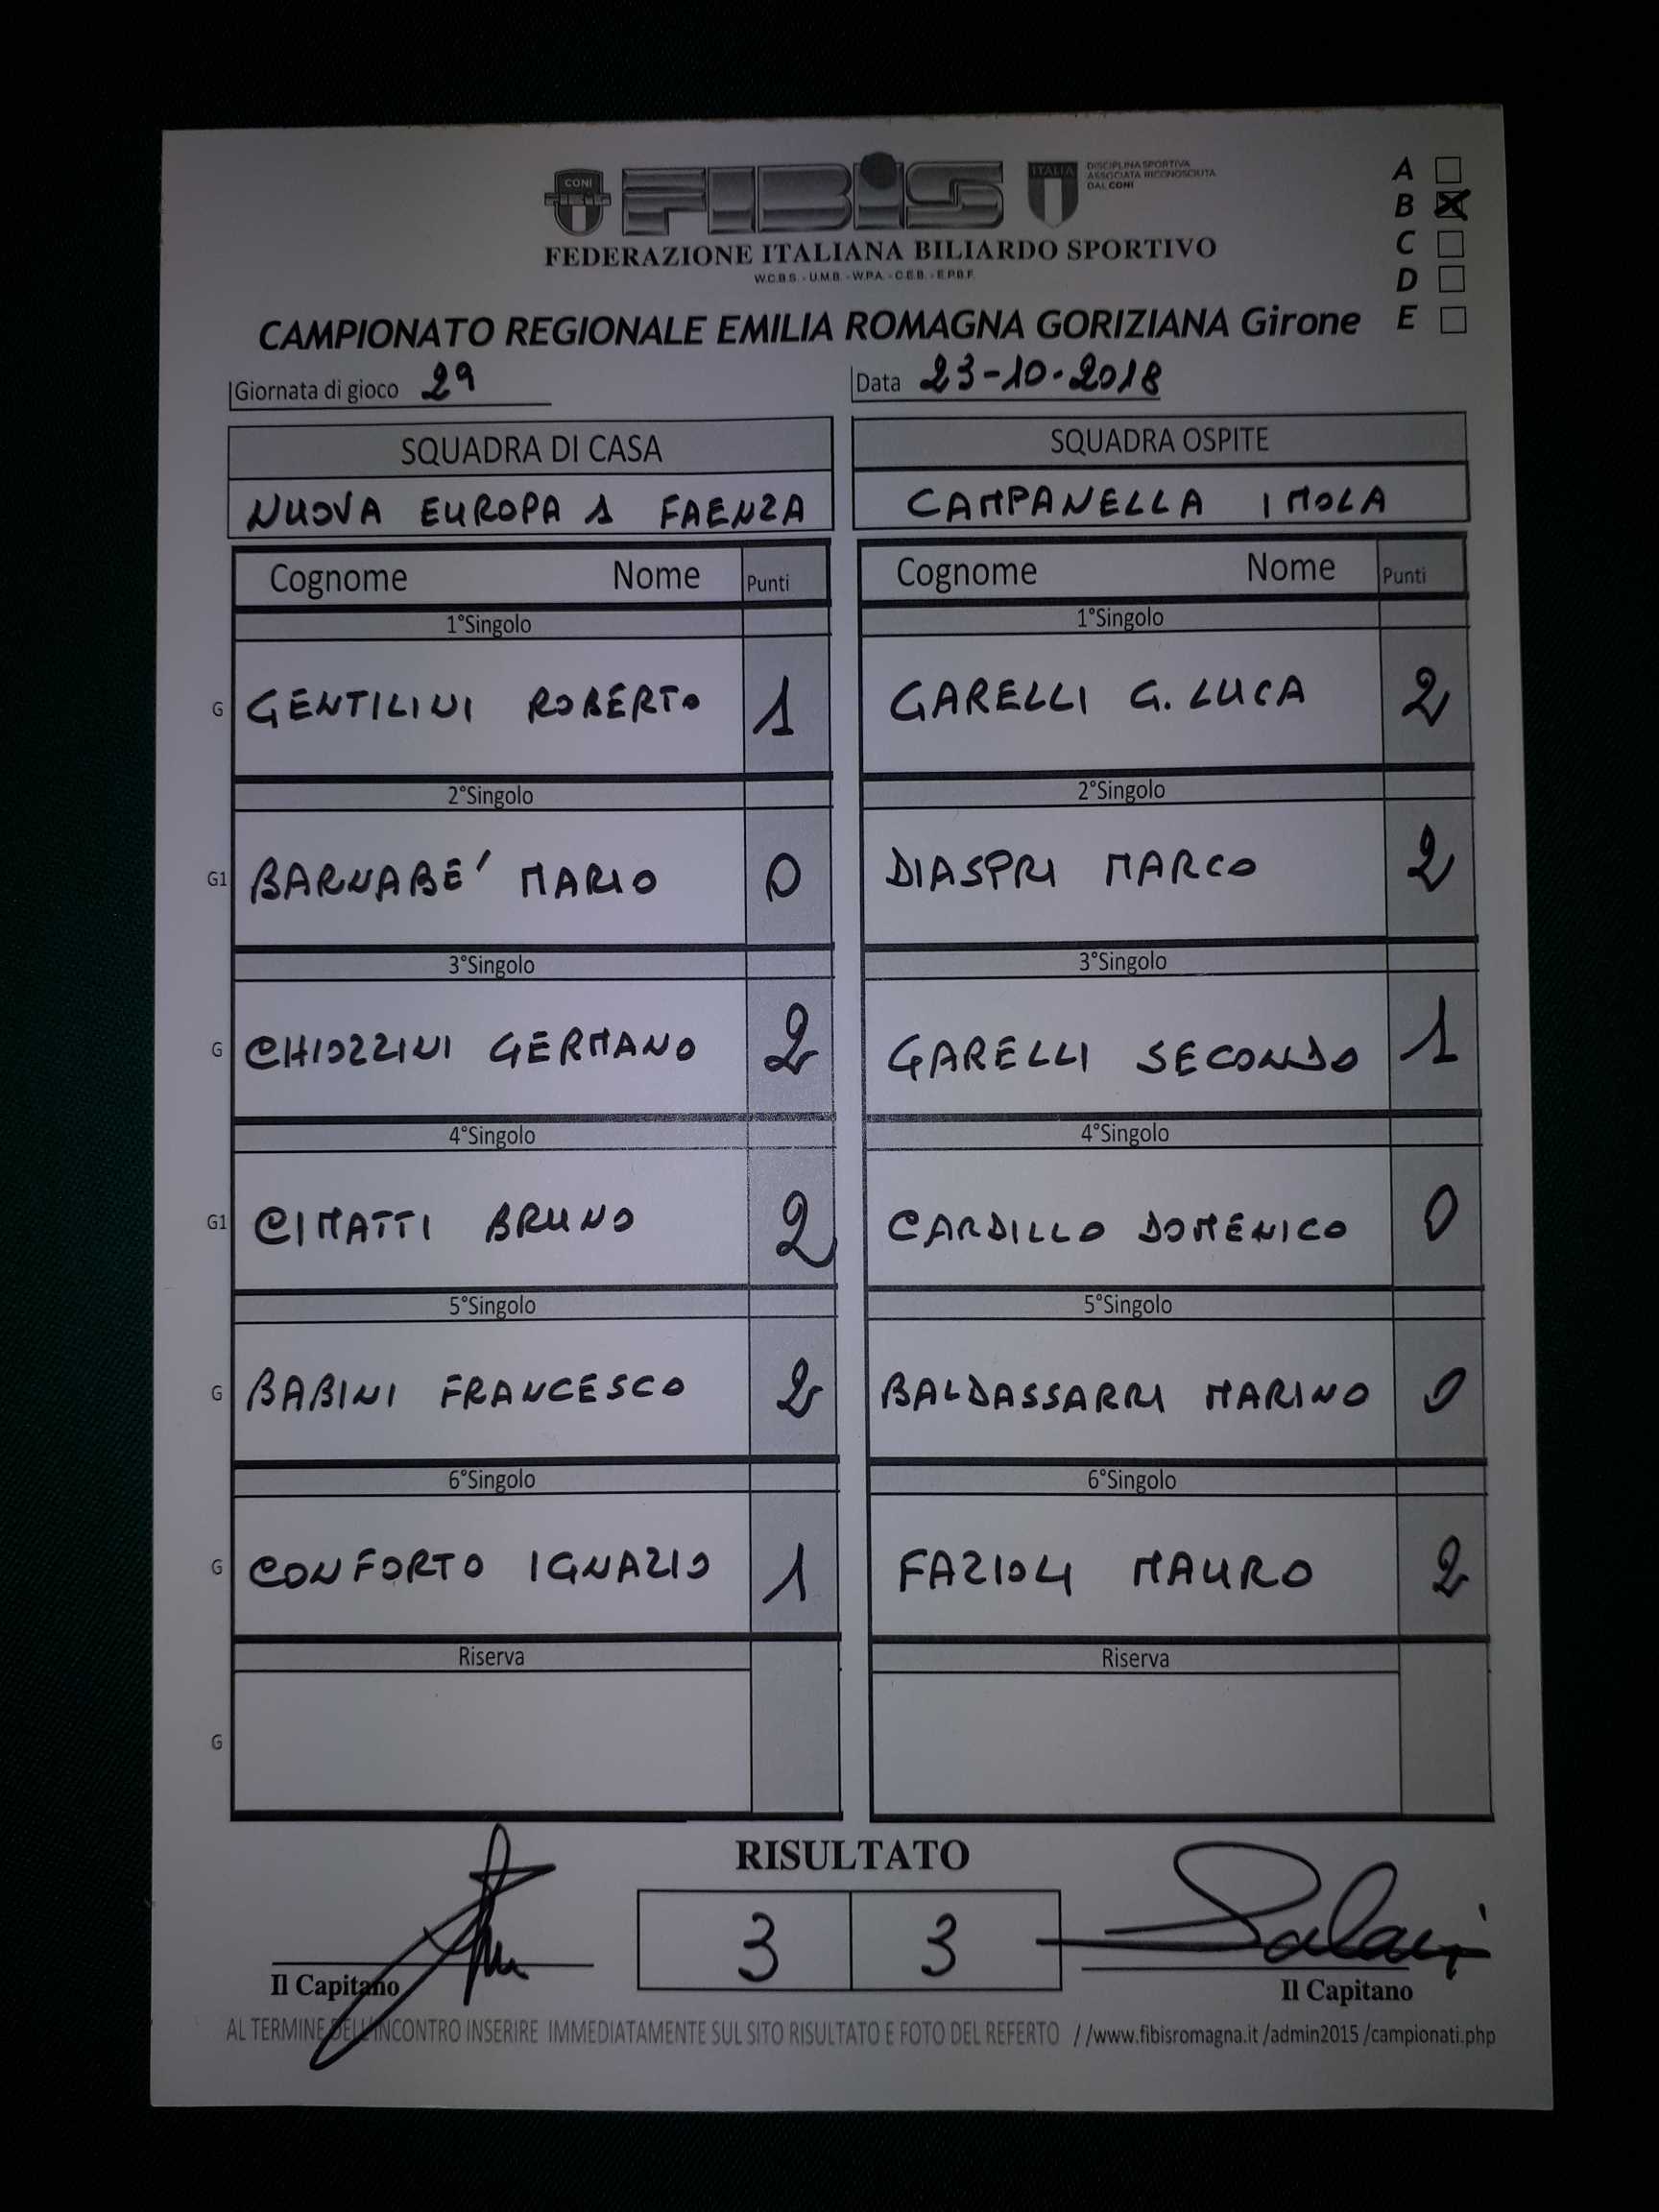 CONI
FIBIS
ITALIA
DISCIPLINA SPORTIVA
ASSOCIATA RICONOSCIUTA
DAL CONI
FEDERAZIONE ITALIANA BILIARDO SPORTIVO
W.C.B.S. - U.M.B. - W.P.A. - C.E.B. - E.P.B.F.
A
B
C
D
E
CAMPIONATO REGIONALE EMILIA ROMAGNA GORIZIANA Girone
Giornata di gioco 2ª
Data 23-10-2018
SQUADRA DI CASA SQUADRA OSPITE
NUOVA EUROPA 1 FAENZA CAMPANELLA IMOLA
Cognome Nome Punti Cognome Nome Punti
1°Singolo 1°Singolo
G GENTILINI ROBERTO 1 GARELLI G. LUCA 2
2°Singolo 2°Singolo
G1 BARNABE' MARIO 0 DIASPRI MARCO 2
3°Singolo 3°Singolo
G CHIOZZINI GERMANO 2 GARELLI SECONDO 1
4°Singolo 4°Singolo
G1 CIMATTI BRUNO 2 CARDILLO DOMENICO 0
5°Singolo 5°Singolo
G BABINI FRANCESCO 2 BALDASSARRI MARINO 0
6°Singolo 6°Singolo
G CONFORTO IGNAZIO 1 FAZIOLI MAURO 2
Riserva Riserva
G
RISULTATO
3 3
Il Capitano Il Capitano
AL TERMINE DELL'INCONTRO INSERIRE IMMEDIATAMENTE SUL SITO RISULTATO E FOTO DEL REFERTO //www.fibisromagna.it /admin2015 /campionati.php